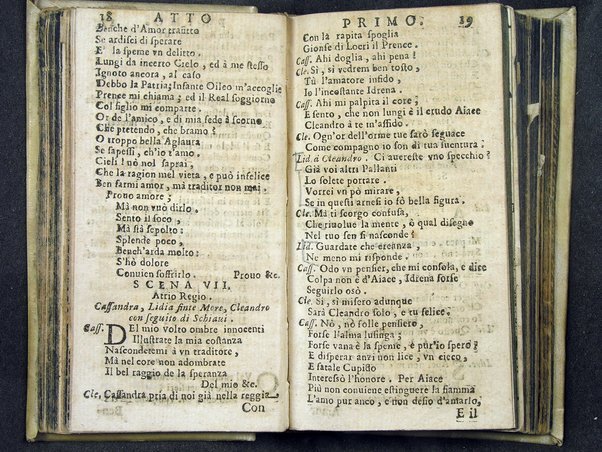 18 ATTO
Benche d'Amor tradito
Se ardisci di sperare
E la speme vn delitto.
Lungi da incerto Cielo, ed à me stesso
Ignoto ancora, al caso
Debbo la Patria; Infante Oileo m'accoglie
Prence mi chiama; ed il Real soggiorno
Col figlio mi comparte.
Or de l'amico, e di mia fede à scorno
Che pretendo, che bramo?
O troppo bella Aglaura
Se sapessi, ch'io t'amo.
Cieli! uò nol saprai,
Che la ragion mel vieta, e può infelice
Ben farmi amor, mà traditor non mai.
Prouo amore;
Mà non vuò dirlo.
Sento il foco,
Mà stà sepolto:
Splende poco,
Bench'arda molto:
S'hò dolore
Conuien soffrirlo. Prouo &c.
SCENA VII.
Atrio Regio.
Cassandra, Lidia finte More, Cleandro
con seguito di Schiaui.
Cass. Del mio volto ombre innocenti
Illustrate la mia costanza
Nasconderemi à vn traditore,
Mà nel core non adombrate
Il bel raggio de la speranza
Del mio &c.
Cle. Cassandra pria di noi già nella reggia
Con
PRIMO. 19
Con là rapita spoglia
Gionse di Locri il Prence.
Cass. Ahi doglia, ahi pena!
Cle. Si, si vedrem ben tosto,
Tù l'amatore infido,
Io l'incostante Idrena.
Cass. Ahi mi palpita il core;
E sento, che non lungi è il crudo Aiace
Cleandro à te m'affido.
Cle. Ogn'or dell'orme tue sarò seguace
Come compagno io son di tua suentura:
Lid. à Cleandro. Ci auereste vno specchio?
Già voi altri Pallanti
Lo solete portare.
Vorrei vn pò mirare,
Se in questi arnesi io fò bella figura.
Cle. Mà ti scorgo confusa,
Che riuolue la mente, ò qual disegno
Nel tuo sen si nasconde?
Lid. Guardate che creanza,
Ne meno mi risponde.
Cass. Odo vn pensier, che mi consola, e dice
Colpa non è d'Aiace, Idrena forse
Seguirlo osò.
Cle. Si, si misero adunque
Sarà Cleandro solo, e tu felice.
Cass. Nò, nò folle pensiero,
Forse l'alma lusinga;
Forse vana è la spense, è pur io spero?
E disperar anzi non lice, vn cieco,
E fatale Cupido
Interessò l'honore. Per Aiace
Più non conuiene estinguere la fiamma
L'amo pur anco, e non desio d'amarlo,
E il